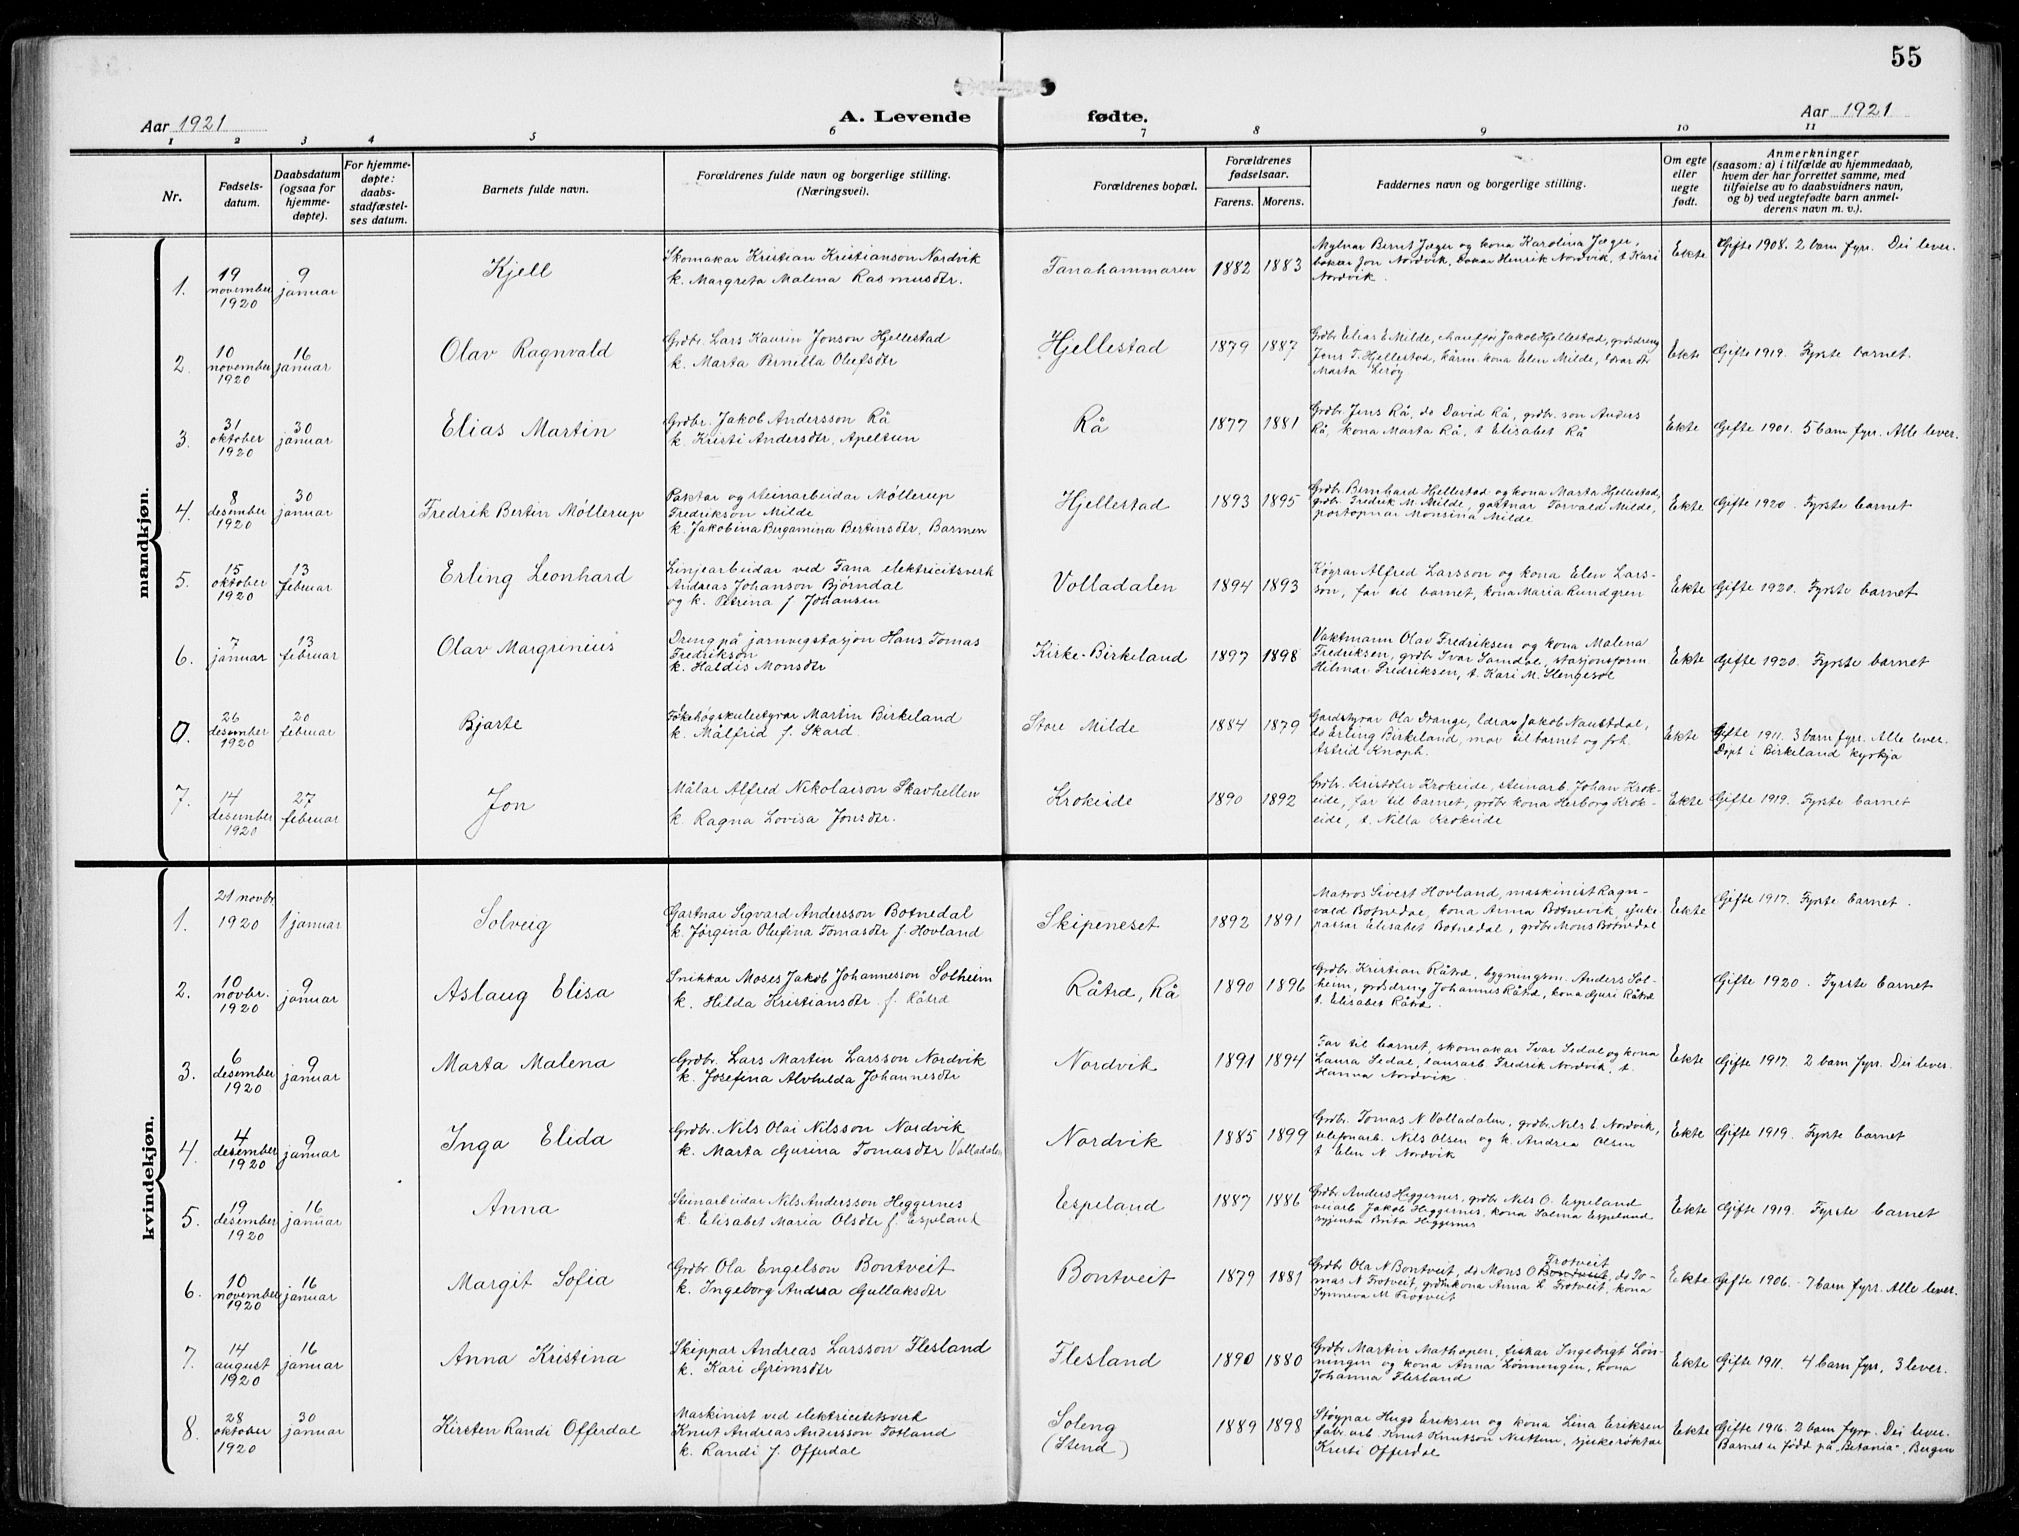 55
Aar 1921
A. Levende fødte.
Aar 1921
1 2 3 4 5 6 7 8 9 10 11
Nr.
Fødsels-
datum.
Daabsdatum
(ogsaa for
hjemme-
døpte).
For hjemme-
døpte:
daabs-
stadfæstel-
ses datum.
Barnets fulde navn.
Forældrenes fulde navn og borgerlige stilling.
(Næringsvei).
Forældrenes bopæl.
Forældrenes
fødselsaar.
Farens. Morens.
Faddernes navn og borgerlige stilling.
Om egte
eller
uegte
født.
Anmerkninger
(saasom: a) i tilfælde av hjemmedaab,
hvem der har forrettet samme, med
tilføielse av to daabsvidners navn,
og b) ved uegtefødte barn anmel-
derens navn m. v.).
mandkjøn.
1.
19
november
1920
9
januar
Kjell
Skomakar Kristian Kristianson Nordvik
k. Margreta Malena Rasmusdtr.
Fanahammaren
1882 1883
Mylnar Bernt Jæger og kona Karolina Jæger,
bakar Jon Nordvik, bakar Henrik Nordvik, t. Kari
Nordvik.
Ekte
Gifte 1908. 2 barn fyrr. Dei lever.
2.
10
november
1920
16
januar
Olav Ragnvald
Grdbr. Lars Kaurin Jonson Hjellestad
k. Marta Pernilla Olufsdtr
Hjellestad
1879 1887
Grdbr Elias E Milde, chaufför Jakob Hjellestad, grdsdreng
Jens T. Hjellestad, kona Elen Milde,
Marta Lerøy
Ekte
Gifte 1919. Fyrste barnet.
3.
31
oktober
1920
30
januar
Elias Martin
Grdbr. Jakob Andersson Rå
k. Kristi Andersdtr, Apeltun
Rå
1877 1881
Grdbr Jens Rå, do David Rå, grdbr. son Anders
Rå, kona Marta Rå, t Elisabet Rå
Ekte
Gifte 1901. 5 barn fyrr. Alle lever.
4.
8
desember
1920
30
januar
Fredrik Bertin Møllerup
Paktar og steinarbeidar Møllerup
Fredrikson Milde
k. Jakobina Bergamina Bertinsdtr, Barmen
Hjellestad
1893 1895
Grdbr. Bernhard Hjellestad og kona Marta Hjellestad,
grdbr. Fredrik M. Milde, gartnar Torvald Milde,
portopnar Monsina Milde
Ekte
Gifte 1920. Fyrste barnet
5.
15
oktober
1920
13
februar
Erling Leonhard
Linjearbeidar ved Fana elektricitsverk
Andreas Johanson Bjørndal
og k. Petrina f. Johansen
Volladalen
1894 1893
Køyrar Alfred Larsson og kona Elen Lars-
son, far til barnet, kona Maria Lundgren
Ekte
Gifte 1920. Fyrste barnet
6.
7
januar
13
februar
Olav Margrinius
Dreng på jarnvegstasjon Hans Tomas
Fredrikson
k. Haldis Monsdtr
Kirke-Birkeland
1897 1898
Vaktmann Olav Fredriksen og kona Malena
Fredriksen, grdbr Ivar Samdal, stasjonsform
Hilmar Fredriksen, t. Kari M. Stengesøl
Ekte
Gifte 1920. Fyrste barnet
0.
26
desember
1920
20
februar
Bjarte
Folkehøgskulestyrar Martin Birkeland
k. Målfrid f. Skard.
Store Milde
1884 1879
Gardstyrar Ola Drange, lærar Jakob Naustdal,
do Erling Birkeland, mor til barnet og frk.
Astrid Knoph.
Ekte
Gifte 1911. 3 barn fyrr. Alle lever.
Døpt i Birkeland kyrkja
7.
14
desember
1920
27
februar
Jon
Målar Alfred Nikolaison Skavhellen
k. Ragna Lovisa Jonsdtr.
Krokeide
1890 1892
Grdbr. Kristofer Krokeide, steinarb. Johan Krok-
eide, far til barnet, grdbr kona Herborg Krok-
eide, t. Nilla Krokeide
Ekte
Gifte 1919. Fyrste barnet
kvindekjøn.
1.
21 novbr.
1920
1 januar
Solveig
Gartnar Sigvard Andersson Botnedal
k. Jørgina Olufina Tomasdtr f. Hovland
Skipeneset
1892 1891
Matros Sivert Hovland, maskinist Ragn-
vald Botnedal, kona Anna Botnevik, sjuke-
passar Elisabet Botnedal, grdbr Mons Botnedal
Ekte
Gifte 1917. Fyrste barnet.
2.
10
novbr.
1920
9
januar
Aslaug Elisa
Snikkar Moses Jakob Johannesson Solheim
k. Hilda Kristiansdtr f. Råtræ
Råtræ, Rå
1890 1896
Grdbr. Kristian Råtræ, bygningssn. Anders Sol-
heim, grdsdreng Johannes Råtræ, kona Guri Råtræ
t. Elisabet Råtræ.
Gifte 1920. Fyrste barnet
3.
6
desember
1920
9
januar
Marta Malena
Grdbr. Lars Martin Larsson Nordvik
k. Josefina Alvhilda Johannesdtr
Nordvik
1891 1894
Far til barnet, skomakar Ivar Sedal og kona
Laura Sedal, laurarb Fredrik Nordvik, t.
Hanna Nordvik.
Ekte
Gifte 1917. 2 barn fyrr. Dei lever.
4.
4
desember
1920
9
januar
Inga Elida
Grdbr. Nils Olai Nilsson Nordvik
k. Marta Gurina Tomasdtr Volladalen
Nordvik
1885 1899
Grdbr. Tomas N Volladalen, grdbr. Nils E. Nordvik,
telefonarb. Nils Olsen og k. Andrea Olsen
t Elen N. Nordvik
Ekte
Gifte 1919. Fyrste barnet
5.
19
desember
1920
16
januar
Anna
Steinarbeidar Nils Andersson Heggernes
k. Elisabet Maria Olsdtr f. Espeland
Espeland
1887 1886
Grdbr Anders Heggernes, grdbr Nils O. Espeland
veiarb Jakob Heggernes, kona Salma Espeland
gjenta Brita Heggernes
Ekte
Gifte 1919. Fyrste barnet
6.
10
november
1920
16
januar
Margit Sofia
Grdbr Ola Engelson Bontveit
k. Ingeborg Andrea Gullaksdtr
Bontveit
1879 1881
Grdbr Ola N Bontveit, do Mons O Bontveit Frotveit, do To-
mas N Frotveit, grdbrkona Anna L. Frotveit, kona
Synneva M Frotveit
Ekte
Gifte 1906. 7 barn fyrr. Alle lever.
7.
14
august
1920
16
januar
Anna Kristina
Skippar Andreas Larsson Flesland
k. Kari Grimsdtr
Flesland
1890 1880
Grdbr Martin Mathopen, fiskar Ingebrigt Løn-
ningen og kona Anna Lønningen, kona
Johanna Flesland
Ekte
Gifte 1911. 4 barn fyrr, 3 lever.
8.
28
oktober
1920
30
januar
Kirsten Randi Offerdal
Maskinist ved elektricitetsverk
Knut Andreas Andersson Totland
k. Randi f. Offerdal
Soleng
(Stend)
1889 1898
Støypar Hugo Eriksen og kona Lina Eriksen
fabr. arb Knut Knutson Nettun, sjukerøktar
Kristi Offerdal
Ekte
Gifte 1916. 2 barn fyrr. Dei lever.
Barnet er fødd på "Betania", Bergen